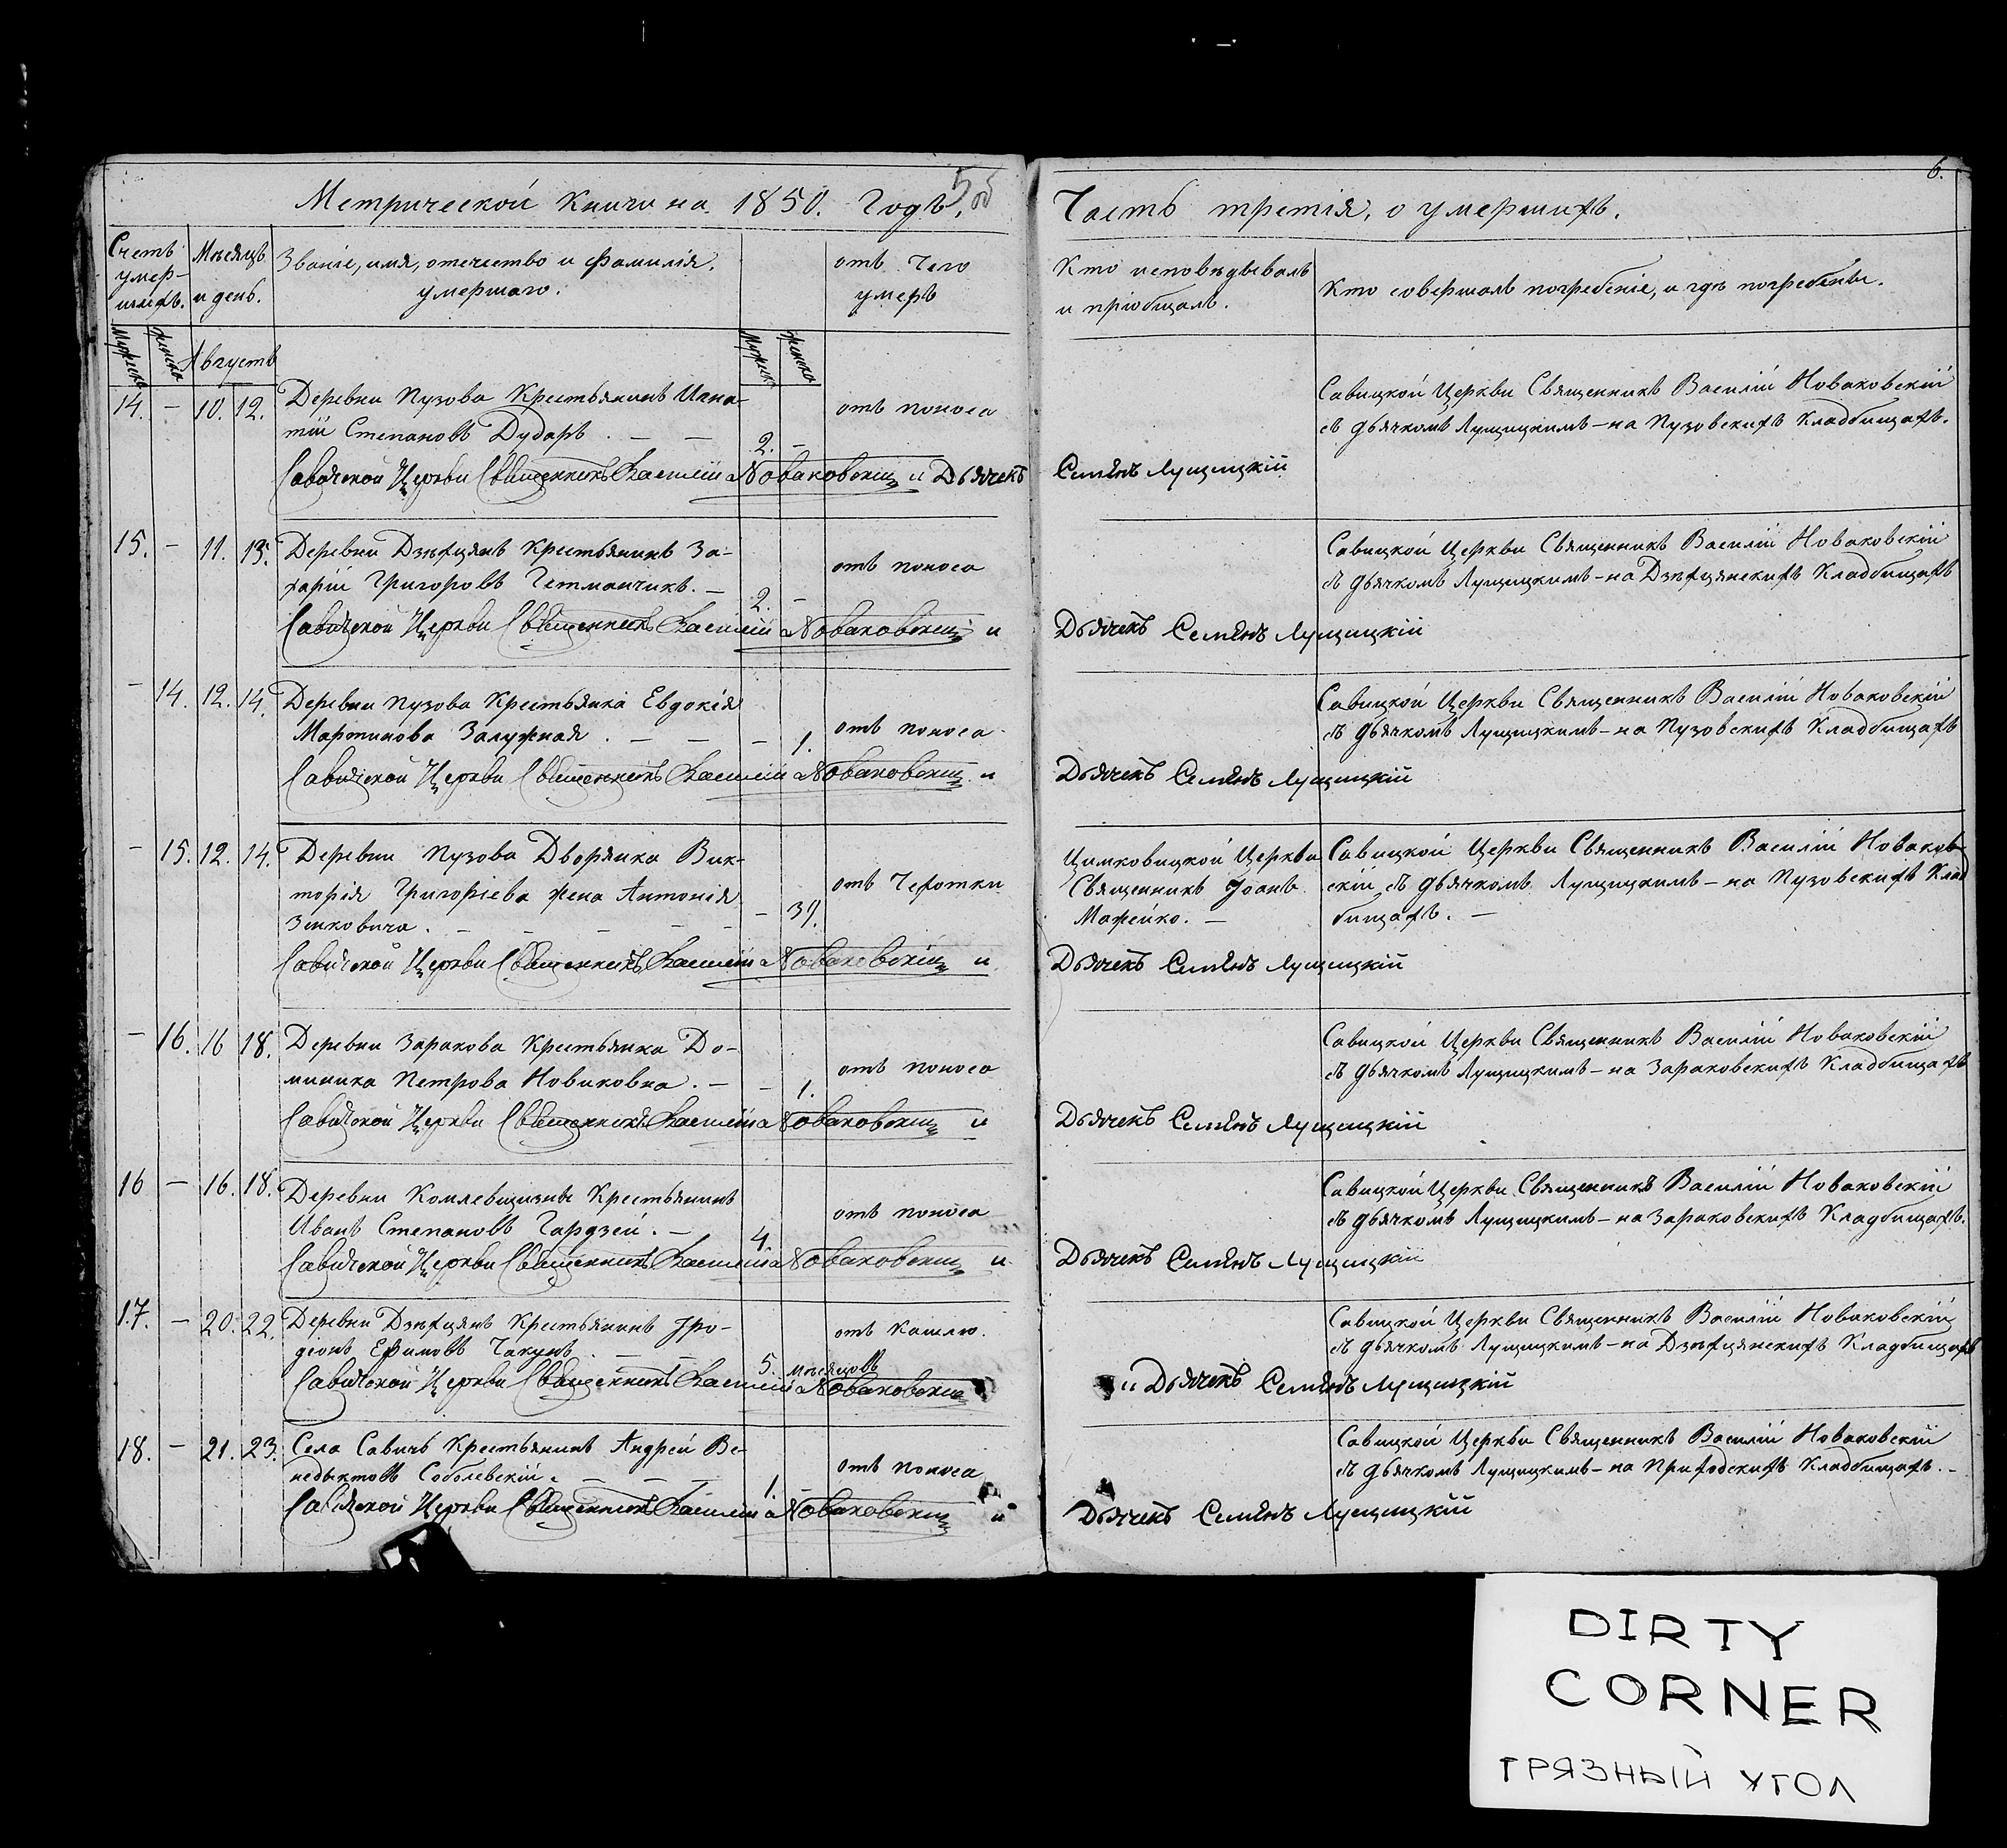 Метрической Книги на 1850. Годъ.
5 об
Часть третія, о умершихъ.
6.
Счетъ умер-шихъ.
Мѣсяцъ и день.
Званіе, имя, отечество и фамилія умершаго.
отъ чего умеръ
Кто исповѣдывалъ и пріобщалъ.
Кто совершалъ погребеніе, и гдѣ погребены.
Мужеска
Женска
Августъ
Мужеска
Женска
14. — 10. 12. Деревни Пузова Крестьянинъ Игна-
тій Степановъ Дударъ. — — 2. — отъ поноса
Савицкой Церкви Священникъ Василій Новаковскій
съ дьячкомъ Лущицкимъ — на Пузовскихъ Кладбищахъ.
Савичской Церкви Священникъ Василій Новаковскій и Дьячекъ Семенъ Лущицкій
15. — 11. 13. Деревни Дзѣхцянъ Крестьянинъ За-
харій Григоровъ Гетманчикъ. — 2. — отъ поноса
Савицкой Церкви Священникъ Василій Новаковскій
съ дьячкомъ Лущицкимъ — на Дзѣхцянскихъ Кладбищахъ
Савичской Церкви Священникъ Василій Новаковскій и Дьячекъ Семенъ Лущицкій
— 14. 12. 14. Деревни Пузова Крестьянка Евдокія
Мартинова Залужная. — — — 1. отъ поноса
Савицкой Церкви Священникъ Василій Новаковскій
съ дьячкомъ Лущицкимъ — на Пузовскихъ Кладбищахъ
Савичской Церкви Священникъ Василій Новаковскій и Дьячекъ Семенъ Лущицкій
— 15. 12. 14. Деревни Пузова Дворянка Вик-
торія Григоріева жена Антонія
Зенковича. — — — — — 39. отъ Чехотки
Цимковицкой Церкви
Священникъ Іоанъ
Мажейко. —
Савицкой Церкви Священникъ Василій Новаков-
скій съ дьячкомъ Лущицкимъ — на Пузовскихъ Клад
бищахъ. —
Савичской Церкви Священникъ Василій Новаковскій и Дьячекъ Семенъ Лущицкій
— 16. 16 18. Деревни Заракова Крестьянка До-
миника Петрова Новиковна. — — 1. отъ поноса
Савицкой Церкви Священникъ Василій Новаковскій
съ дьячкомъ Лущицкимъ — на Зараковскихъ Кладбищахъ
Савичской Церкви Священникъ Василій Новаковскій и Дьячекъ Семенъ Лущицкій
16 — 16. 18. Деревни Комлевщизны Крестьянинъ
Иванъ Степановъ Гардзей. — 4. отъ поноса
Савицкой Церкви Священникъ Василій Новаковскій
съ дьячкомъ Лущицкимъ — на Зараковскихъ Кладбищахъ.
Савичской Церкви Священникъ Василій Новаковскій и Дьячекъ Семенъ Лущицкій
17. — 20. 22. Деревни Дзѣхцянъ Крестьянинъ Іро-
діонъ Ефимовъ Чакунъ. — — 5. мѣсяцовъ отъ Кашлю.
Савицкой Церкви Священникъ Василій Новаковскій
съ дьячкомъ Лущицкимъ — на Дзѣхцянскихъ Кладбищахъ
Савичской Церкви Священникъ Василій Новаковскій и Дьячекъ Семенъ Лущицкій
18. — 21. 23. Села Савичъ Крестьянинъ Андрей Ве-
недыктовъ Соболевскій. — — — 1. — отъ поноса
Савицкой Церкви Священникъ Василій Новаковскій
съ дьячкомъ Лущицкимъ — на Приходскихъ Кладбищахъ. —
Савичской Церкви Священникъ Василій Новаковскій и Дьячекъ Семенъ Лущицкій
DIRTY
CORNER
ГРЯЗНЫЙ УГОЛ